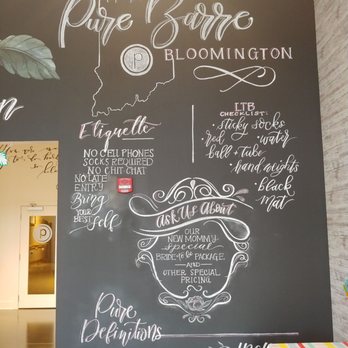 Pure Barre
BLOOMINGTON
P
Etiquette
NO CELL PHONES
SOCKS REQUIRED
NO CHIT CHAT
NO LATE
ENTRY
Bring
YOUR
BEST
Self
LTB
CHECKLIST:
• sticky socks
red • water
ball + tube
• hand weights
• black
mat
Ask Us About
OUR
NEW MOMMY
special
BRIDE-TO-BE PACKAGE
AND
OTHER SPECIAL
PRICING
Pure
Definitions
P